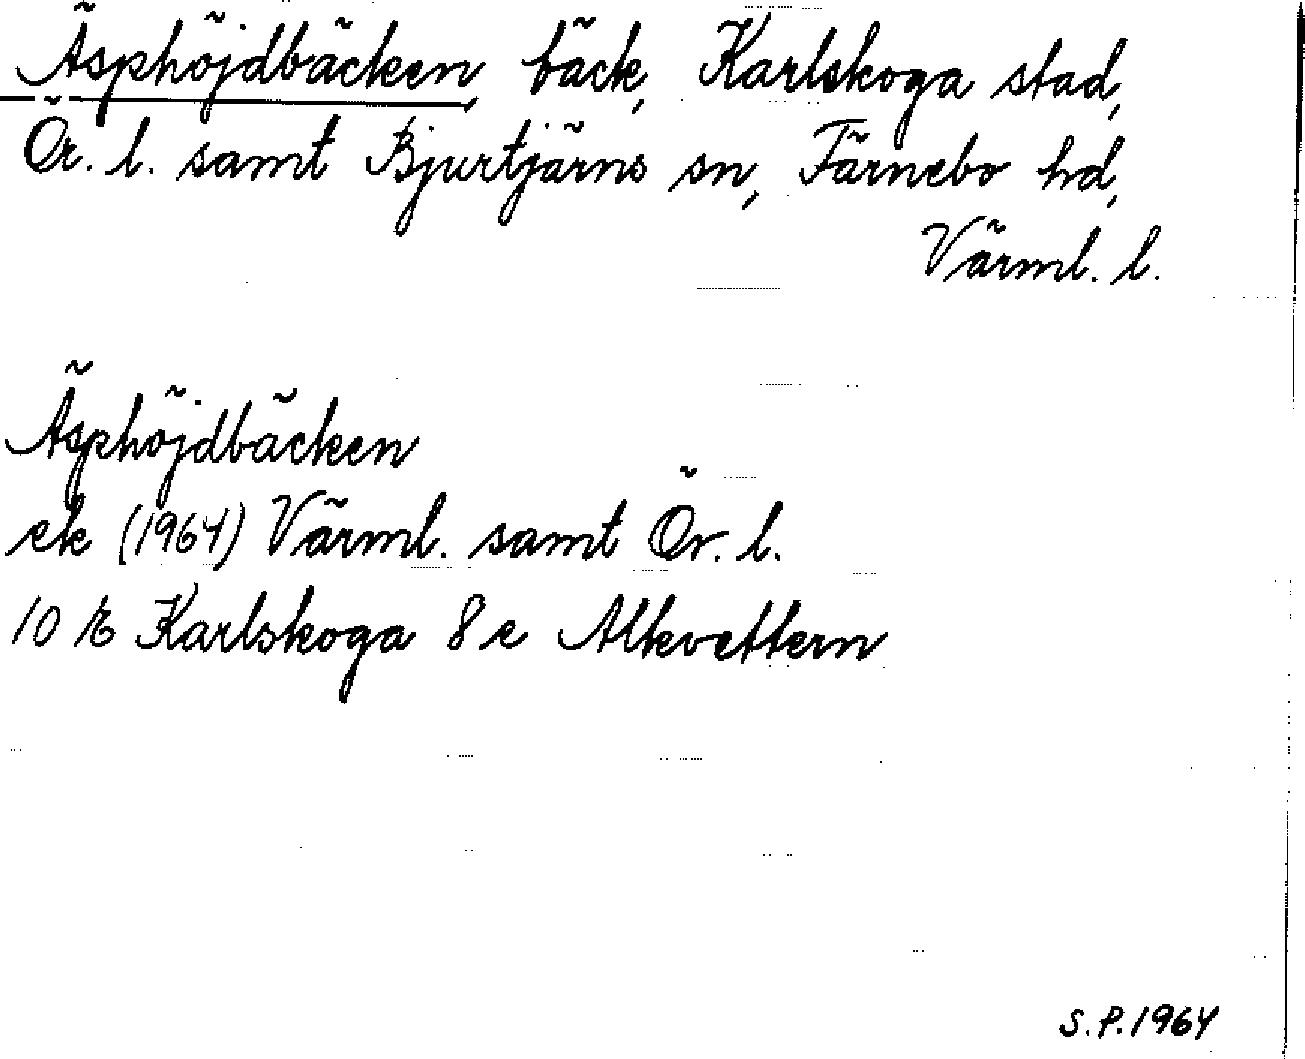 Äsphöjdbäcken, bäck, Karlskoga stad,
Ör. l. samt Bjurtjärns sn, Färnebo hd,
Värml. l.
Äsphöjdbäcken
ek (1964) Värml. samt Ör. l.
10 E Karlskoga 8 e Alkvettern
S.P. 1964